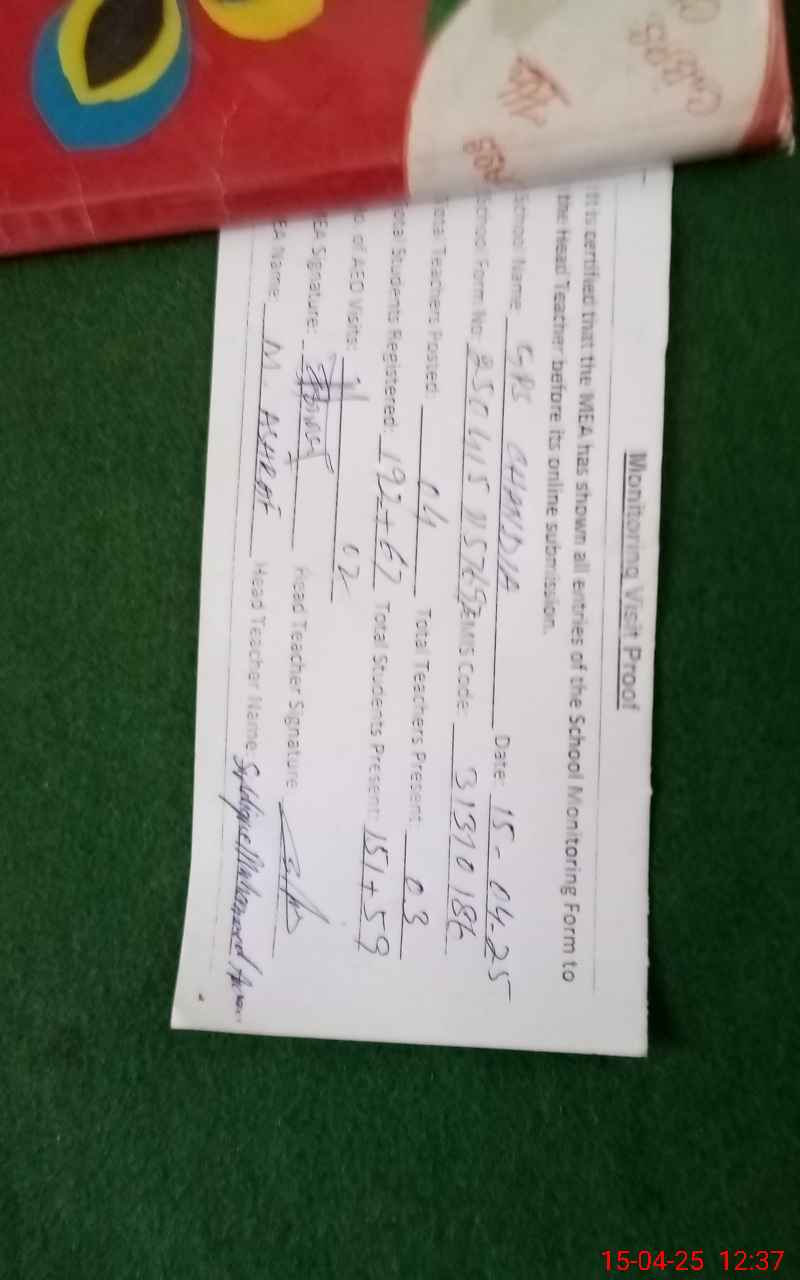 Monitoring Visit Proof
It is certified that the MEA has shown all entries of the School Monitoring Form to
the Head Teacher before its online submission.
School Name: GPS CHANDIA Date: 15-04-25
School Form No: EMIS Code: 3131018
Total Teachers Posted: 04 Total Teachers Present: 03
Total Students Registered: 192+67 Total Students Present: 151+59
No of AEO Visits: 02
MEA Signature: Head Teacher Signature
MEA Name: M. ASHRAF Head Teacher Name:
15-04-25 12:37